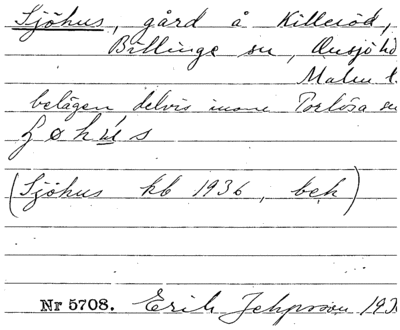 Sjöhus, gård å Killeröd,
Billinge sn, Onsjö hd
Malm. l.
belägen delvis inom Torlösa sn
(Sjöhus kb 1936, bek)
Nr 5708. Erik Jeppsson 193